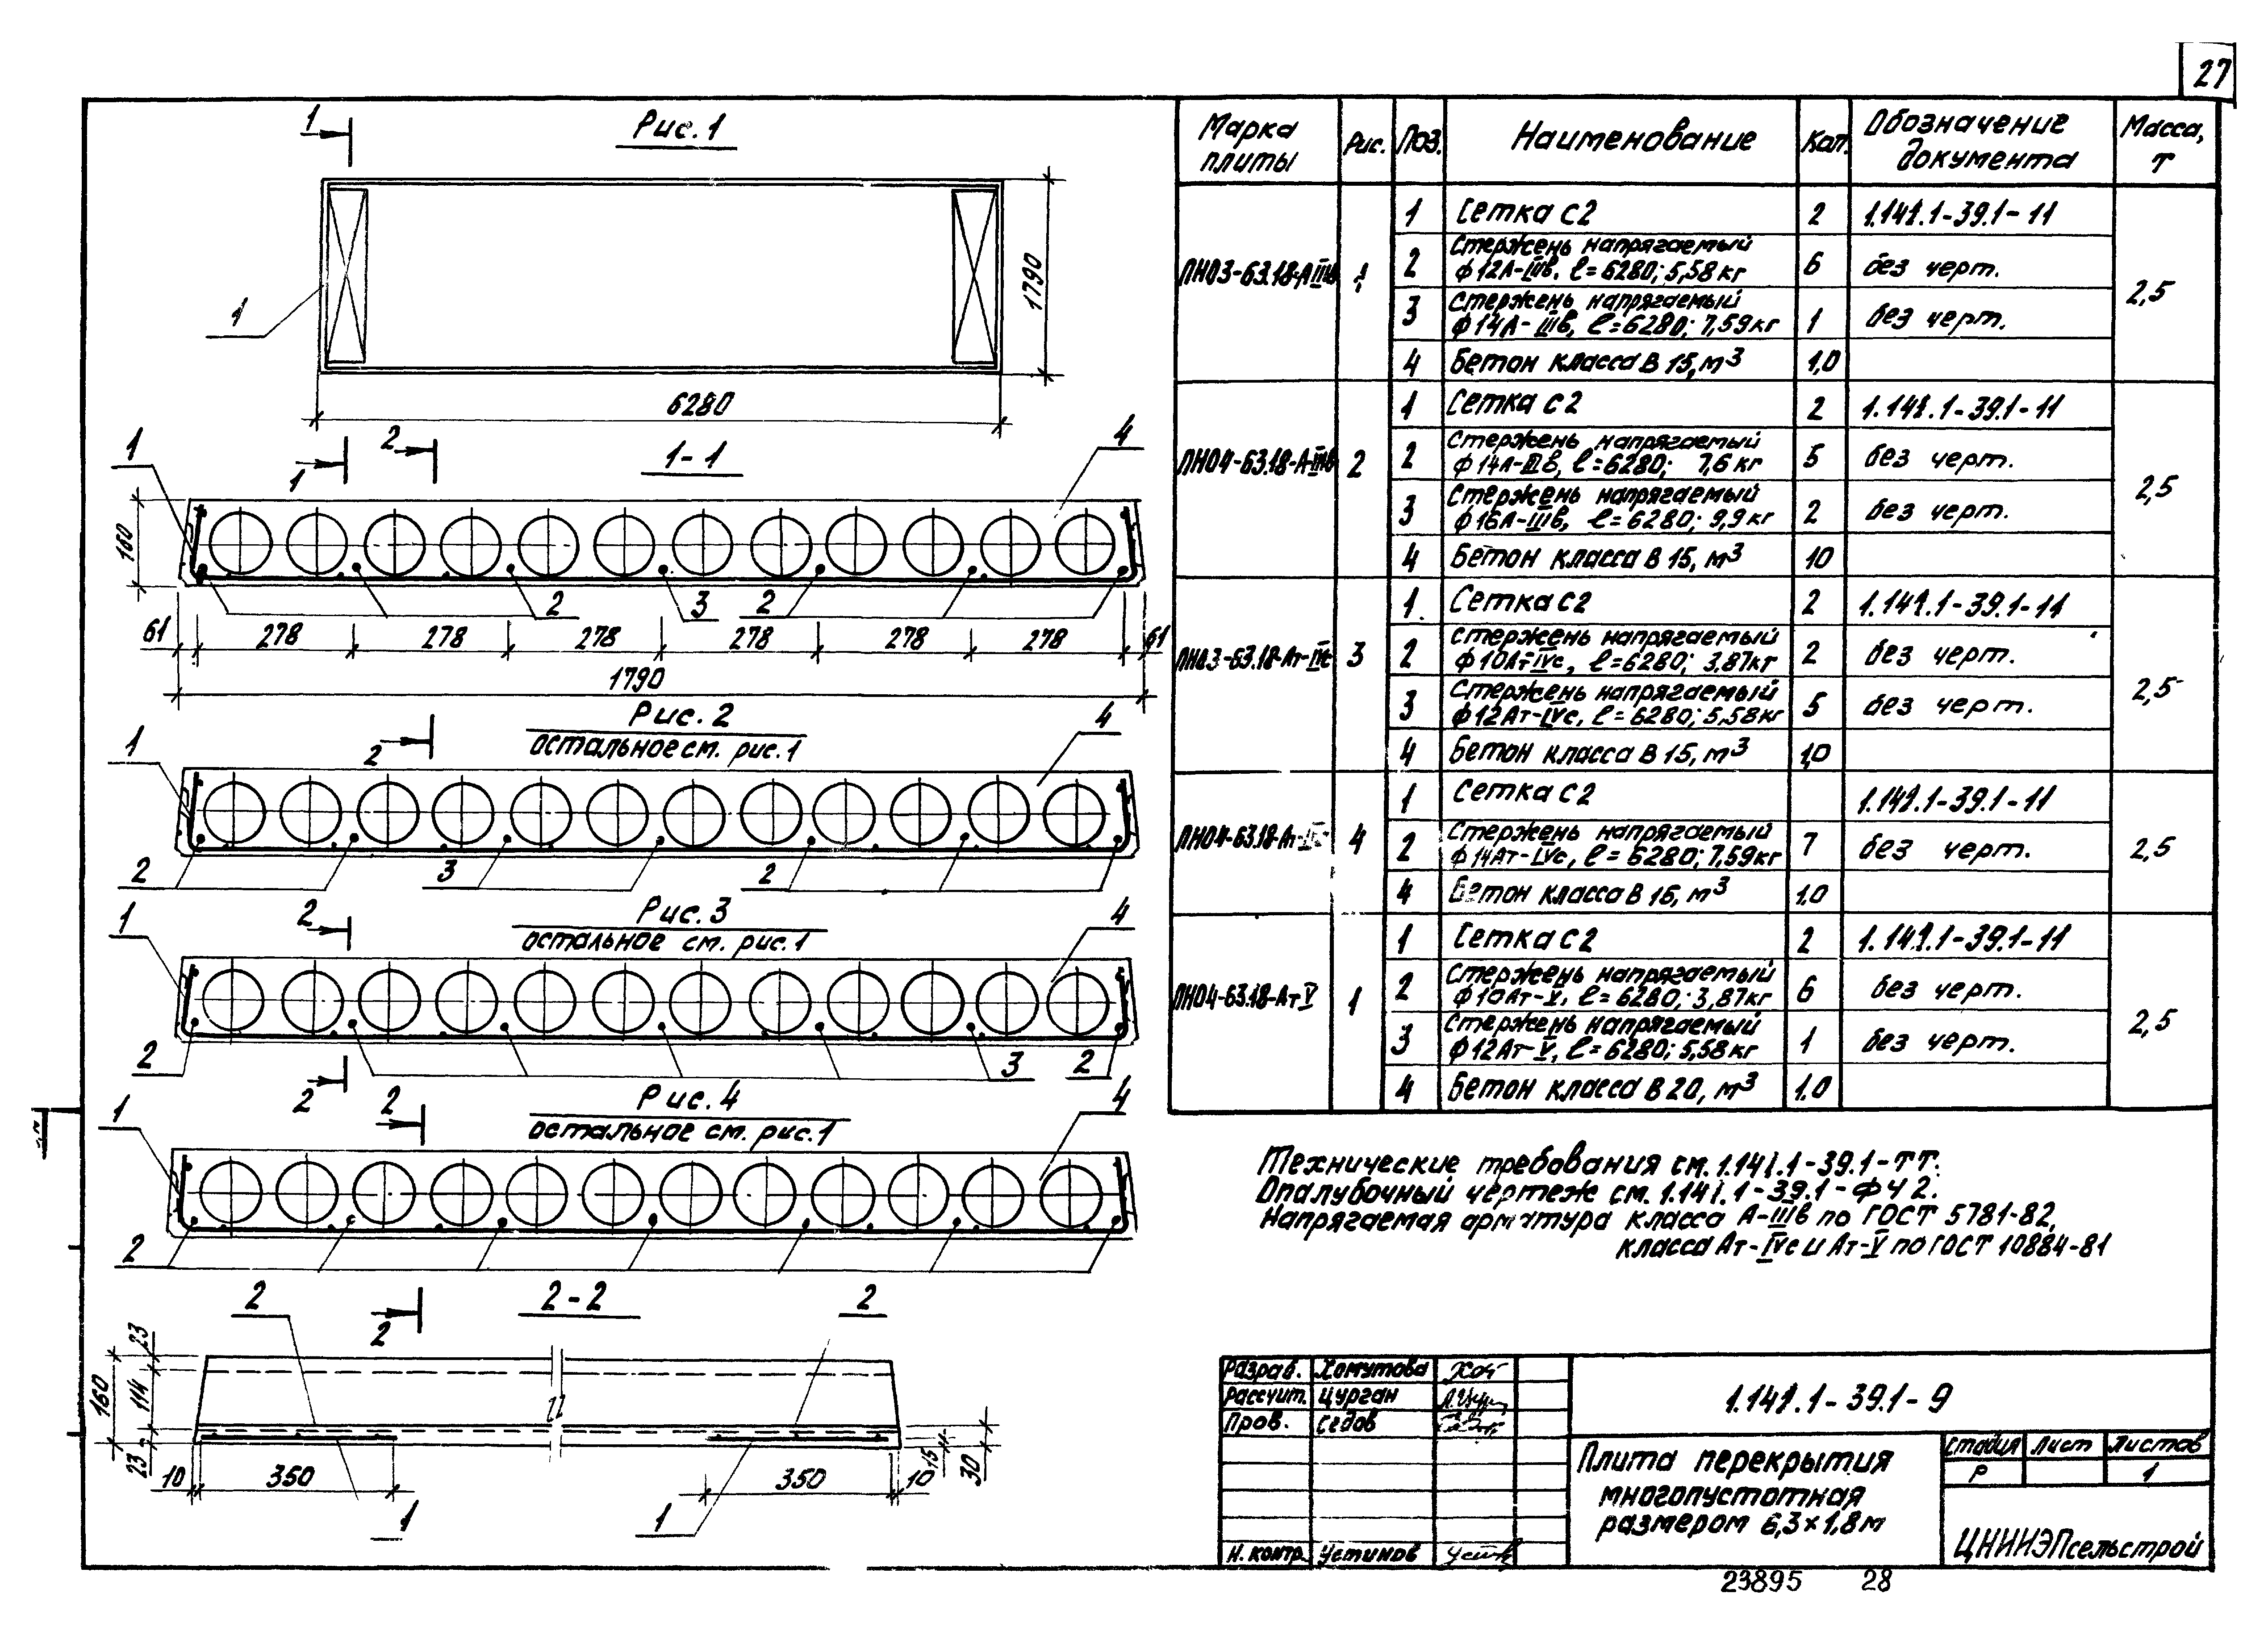 27
Рис. 1
1
1
1790
6280
1
2
1-1
4
1
160
2
3
2
61
278
278
278
278
278
278
61
1790
Рис. 2
остальное см. рис. 1
2
1
4
2
3
2
Рис. 3
остальное см. рис. 1
2
1
4
2
3
2
2
Рис. 4
остальное см. рис. 1
2
1
4
2
2-2
2
2
2
160
23
114
23
10
350
350
10
15
30
1
1
Марка плиты
Рис.
Поз.
Наименование
Кол.
Обозначение документа
Масса, т
ПНО3-63.18-АIIIв
1
1 Сетка С2 2 1.141.1-39.1-11
2 Стержень напрягаемый
ф12А-IIIв, ℓ=6280; 5,58 кг 6 без черт.
3 Стержень напрягаемый
ф14А-IIIв, ℓ=6280; 7,59кг 1 без черт.
4 Бетон класса В 15, м³ 1,0
2,5
ПНО4-63.18-А-IIIв
2
1 Сетка С2 2 1.141.1-39.1-11
2 Стержень напрягаемый
ф14А-IIIв, ℓ=6280; 7,6 кг 5 без черт.
3 Стержень напрягаемый
ф16А-IIIв, ℓ=6280; 9,9 кг 2 без черт.
4 Бетон класса В 15, м³ 10
2,5
ПНО3-63.18-Ат-IVс
3
1 Сетка С2 2 1.141.1-39.1-11
2 Стержень напрягаемый
ф10Ат-IVс, ℓ=6280; 3,87кг 2 без черт.
3 Стержень напрягаемый
ф12Ат-IVс, ℓ=6280; 5,58кг 5 без черт.
4 Бетон класса В 15, м³ 1,0
2,5
4
1 Сетка С2 1.141.1-39.1-11
2 Стержень напрягаемый
ф14Ат-IVс, ℓ=6280; 7,59кг 7 без черт.
4 Бетон класса В 15, м³ 1,0
2,5
ПНО4-63.18-Ат V
1
1 Сетка С2 2 1.141.1-39.1-11
2 Стержень напрягаемый
ф10Ат-V, ℓ=6280; 3,87кг 6 без черт.
3 Стержень напрягаемый
ф12Ат-V, ℓ=6280; 5,58кг 1 без черт.
4 Бетон класса В 20, м³ 1,0
2,5
Технические требования см. 1.141.1-39.1-ТТ.
Опалубочный чертеж см. 1.141.1-39.1-ФЧ 2.
Напрягаемая арматура класса А-IIIв по ГОСТ 5781-82,
класса Ат-IVс и Ат-V по ГОСТ 10884-81
Разраб. Хомутова
Рассчит. Цурган
Пров. Седов
Н. контр. Устинов
1.141.1-39.1-9
Плита перекрытия
многопустотная
размером 6,3×1,8м
Стадия Лист Листов
Р 1
ЦНИИЭПсельстрой
23895 28